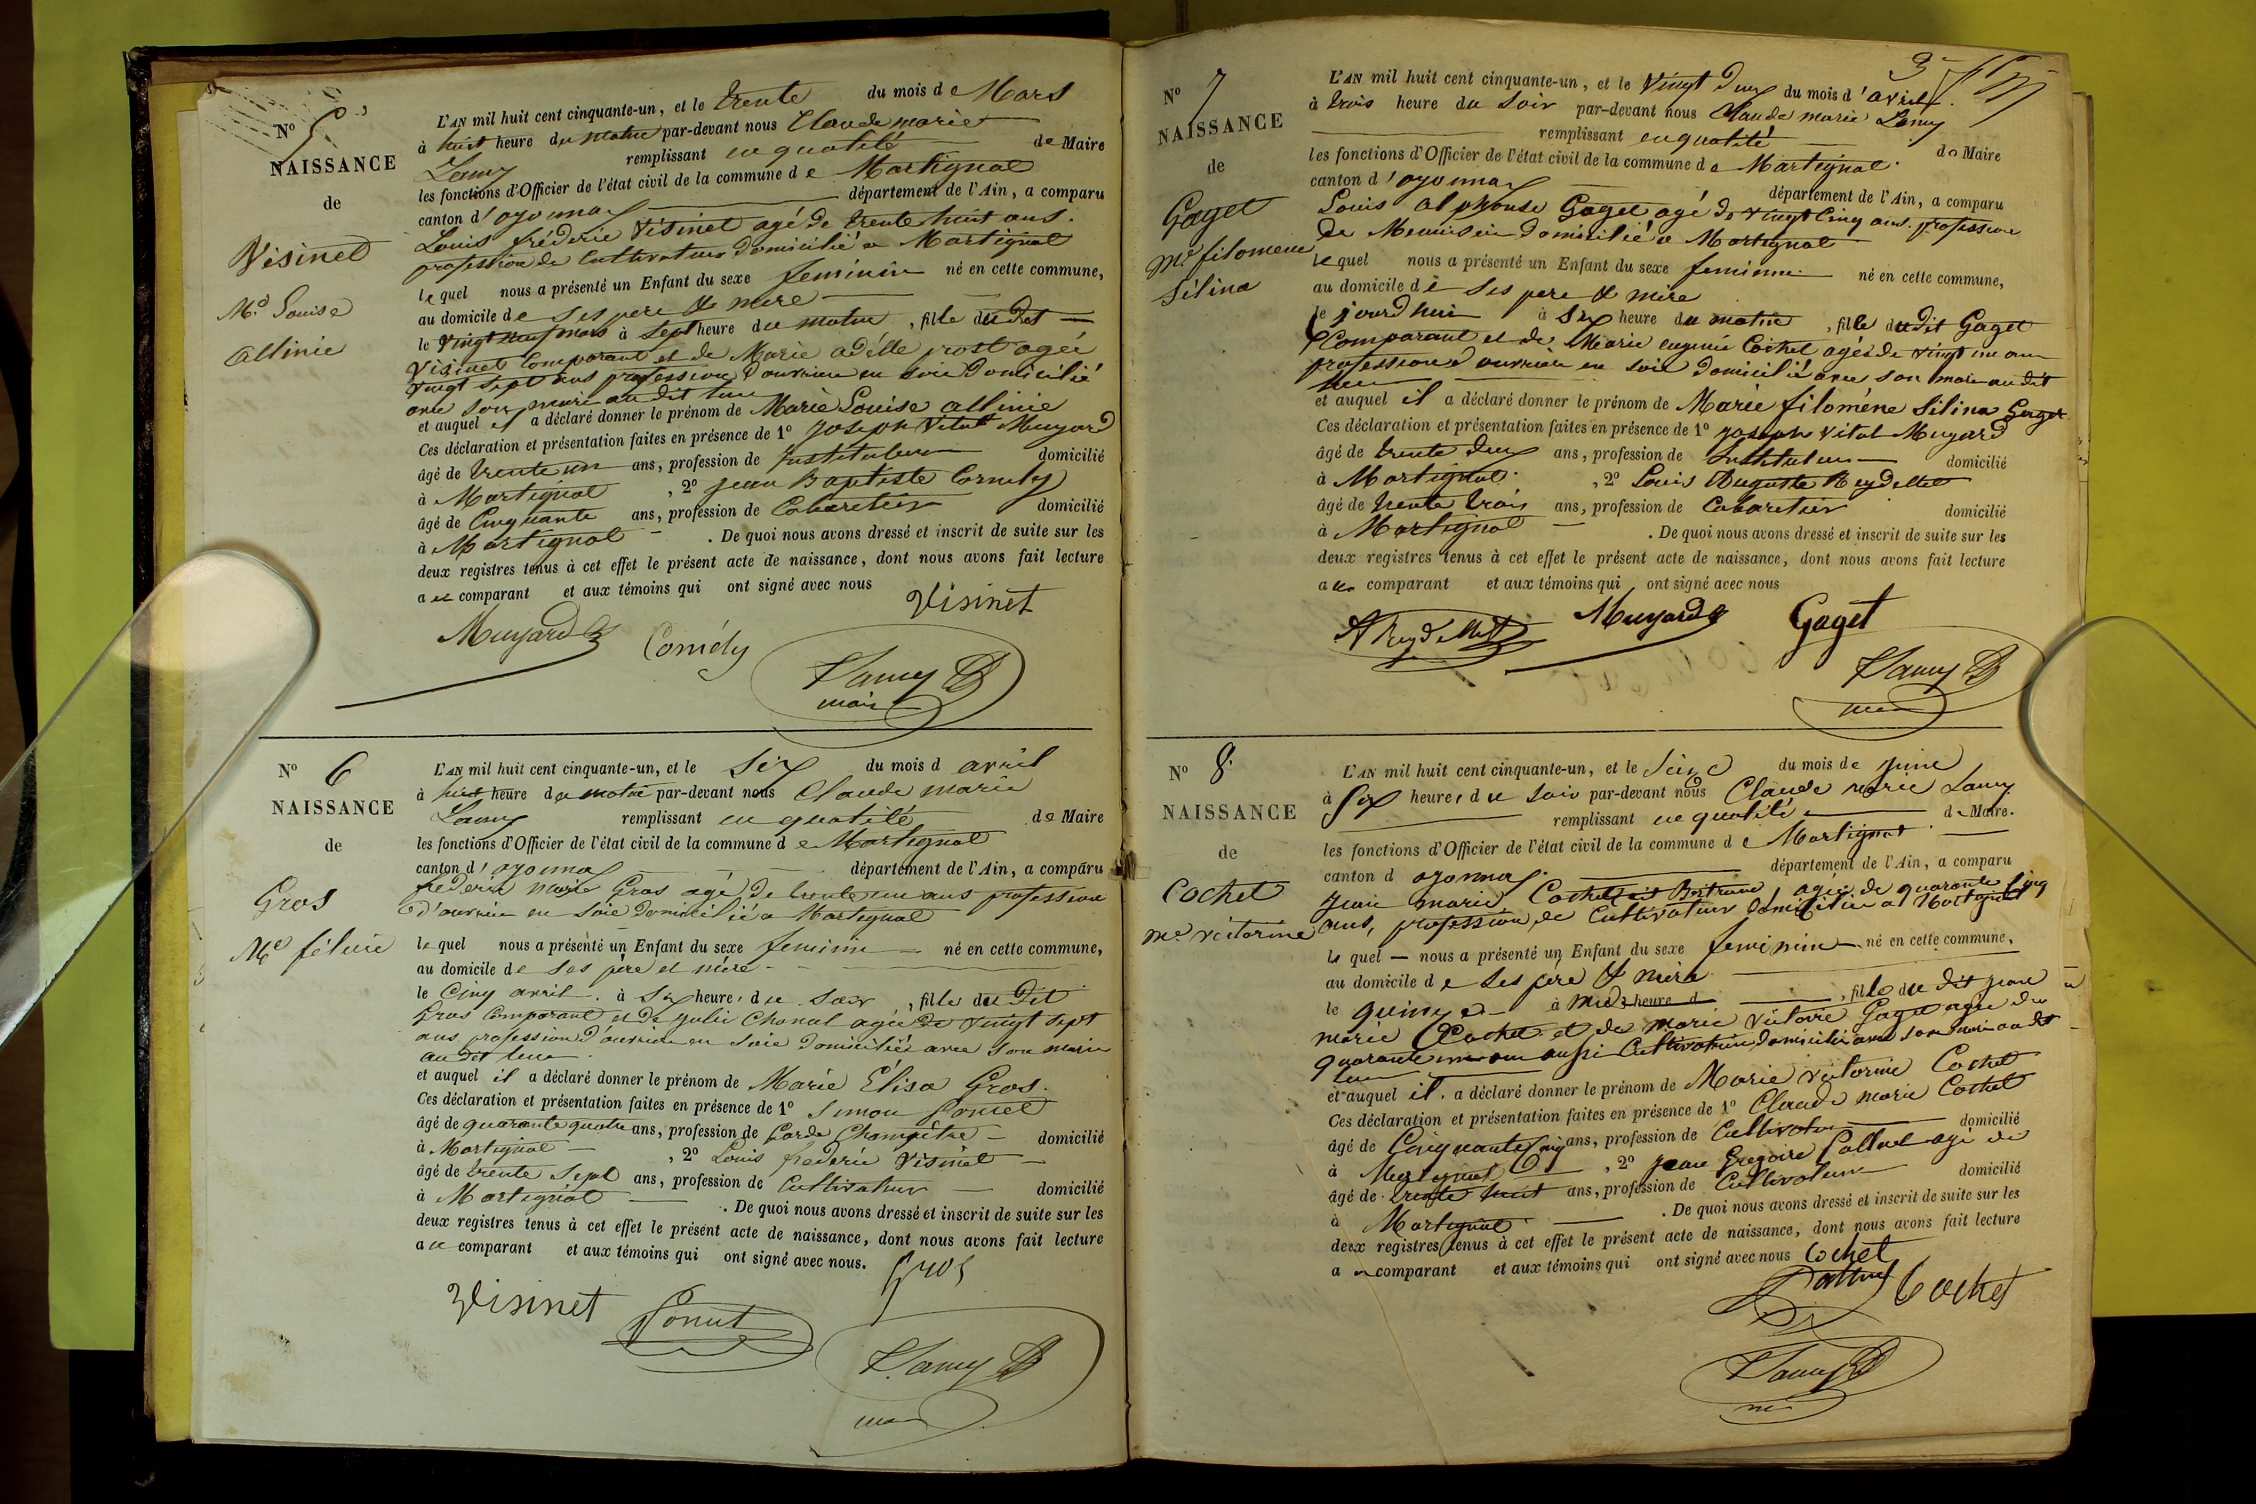 N° 5
NAISSANCE
de
Visinet
Me Louise
Allinie
L'AN mil huit cent cinquante-un, et le trente du mois de Mars
à huit heure du matin par-devant nous Claude marie
Lamy remplissant en qualité de Maire
les fonctions d'Officier de l'état civil de la commune de Martignat
canton d'oyonnax département de l'Ain, a comparu
Louis fréderic Visinet agé de trente huit ans.
profession de Cultivateur domicilié a Martignat
lequel nous a présenté un Enfant du sexe feminin né en cette commune,
au domicile de ses pere & mere
le vingt neuf mars à sept heure du matin, fille du dit
Visinet Comparant et de Marie adélle prost agée
vingt sept ans profession d'ouvriere en soie domicilié
avec son mari au dit lieu
et auquel il a déclaré donner le prénom de Marie Louise allinie
Ces déclaration et présentation faites en présence de 1° Joseph Vital Muyard
âgé de trente un ans, profession de Instituteur domicilié
à Martignat, 2° Jean Baptiste Comely
âgé de Cinquante ans, profession de Cabaretier domicilié
à Martignat. De quoi nous avons dressé et inscrit de suite sur les
deux registres tenus à cet effet le présent acte de naissance, dont nous avons fait lecture
au comparant et aux témoins qui ont signé avec nous
Visinet
Muyard Comély
Lamy
maire
N° 6
NAISSANCE
de
Gros
Me
L'AN mil huit cent cinquante-un, et le Six du mois d avril
à huit heure du matin par-devant nous Claude marie
Lamy remplissant en qualité de Maire
les fonctions d'Officier de l'état civil de la commune de Martignat
canton d'oyonnax département de l'Ain, a comparu
fréderic marie Gros agé de trente un ans profession
d'ouvrier en soie domicilié a Martignat
lequel nous a présenté un Enfant du sexe feminin né en cette commune,
au domicile de ses père et mère
le Cinq avril. à Six heure, du soir, fille du dit
Gros Comparant et de Julie Chanal agée de vingt sept
ans profession d'ouvriere en soie domiciliée avec son marie
au dit lieu
et auquel il a déclaré donner le prénom de Marie Elisa Gros.
Ces déclaration et présentation faites en présence de 1° Simon
âgé de quarante quatre ans, profession de Garde Champêtre domicilié
à Martignat, 2° Louis fréderic Visinet
âgé de trente Sept ans, profession de Cultivateur domicilié
à Martignat. De quoi nous avons dressé et inscrit de suite sur les
deux registres tenus à cet effet le présent acte de naissance, dont nous avons fait lecture
au comparant et aux témoins qui ont signé avec nous. Gros
Visinet
Lamy
maire
3
N° 7
NAISSANCE
de
Gaget
Me filomene
Silina
L'AN mil huit cent cinquante-un, et le Vingt deux du mois d'avril.
à trois heure du soir par-devant nous Claude marie Lamy
remplissant en qualité de Maire
les fonctions d'Officier de l'état civil de la commune de Martignat.
canton d'oyonnax département de l'Ain, a comparu
Louis alphonse Gaget agé de vingt Cinq ans. profession
de Menuisier domicilié a Martignat
lequel nous a présenté un Enfant du sexe feminin né en cette commune,
au domicile de ses pere & mère
le jourd'hui à Six heure du matin, fille du dit Gaget
Comparant et de Marie eugenie Cochet agée de vingt un ans
profession d'ouvriere en soie domicilié avec son mari au dit
lieu
et auquel il a déclaré donner le prénom de Marie filoméne Silina Gaget
Ces déclaration et présentation faites en présence de 1° Joseph Vital Muyard
âgé de trente deux ans, profession de Instituteur domicilié
à Martignat., 2° Louis Auguste Reydellet
âgé de trente trois ans, profession de Cabaretier domicilié
à Martignat. De quoi nous avons dressé et inscrit de suite sur les
deux registres tenus à cet effet le présent acte de naissance, dont nous avons fait lecture
au comparant et aux témoins qui ont signé avec nous
A Reydellet Muyard Gaget
Lamy
N° 8.
NAISSANCE
de
Cochet
Me victorine
L'AN mil huit cent cinquante-un, et le Seize du mois de juin
à Six heure, du soir par-devant nous Claude marie Lamy
remplissant en qualité de Maire.
les fonctions d'Officier de l'état civil de la commune de Martignat
canton d oyonnax. département de l'Ain, a comparu
Jean marie Cochet dit agée de quarante Cinq
ans, profession de Cultivateur domicilié a Martignat
lequel nous a présenté un Enfant du sexe feminin né en cette commune,
au domicile de ses père & mère
le quinze à midi heure d, fille du dit jean
marie Cochet et de marie victoire Gaget agée de
quarante un ans aussi Cultivatrice domiciliée avec son mari au dit
lieu
et auquel il. a déclaré donner le prénom de Marie victorine Cochet
Ces déclaration et présentation faites en présence de 1° Claude marie Cochet
âgé de Cinquante Cinq ans, profession de Cultivateur domicilié
à Martignat, 2° Jean Gregoire agé de
âgé de trente huit ans, profession de Cultivateur domicilié
à Martignat. De quoi nous avons dressé et inscrit de suite sur les
deux registres tenus à cet effet le présent acte de naissance, dont nous avons fait lecture
au comparant et aux témoins qui ont signé avec nous Cochet
Cochet
Lamy